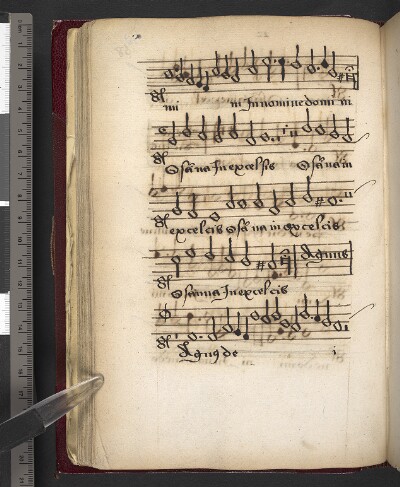 mi ni In nomine domi ni
Osanna In excelsis Osanna in
excelcis Osanna in excelcis
Agnus
Osanna In excelcis
Agnus de i